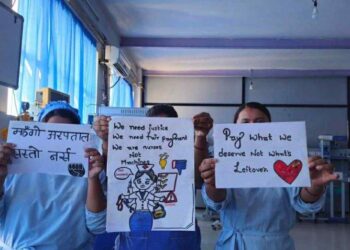 महँगो अस्पताल
सस्तो नर्स
We need justice
We need fair payment
We are nurses
Not
Machines
Pay What we
deserve Not What's
Leftover